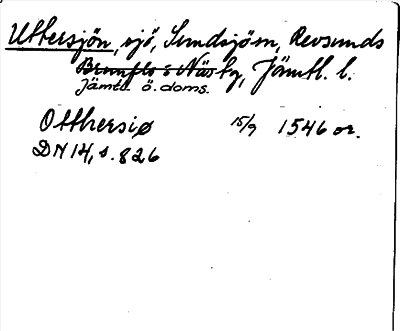 Uttersjön, sjö, Sundsjö sn, Revsunds
Brunflo o Näs tg, Jämtl. l.
Jämtl. ö. doms.
Otthersiø 15/9 1546 or.
DN 14, s. 826